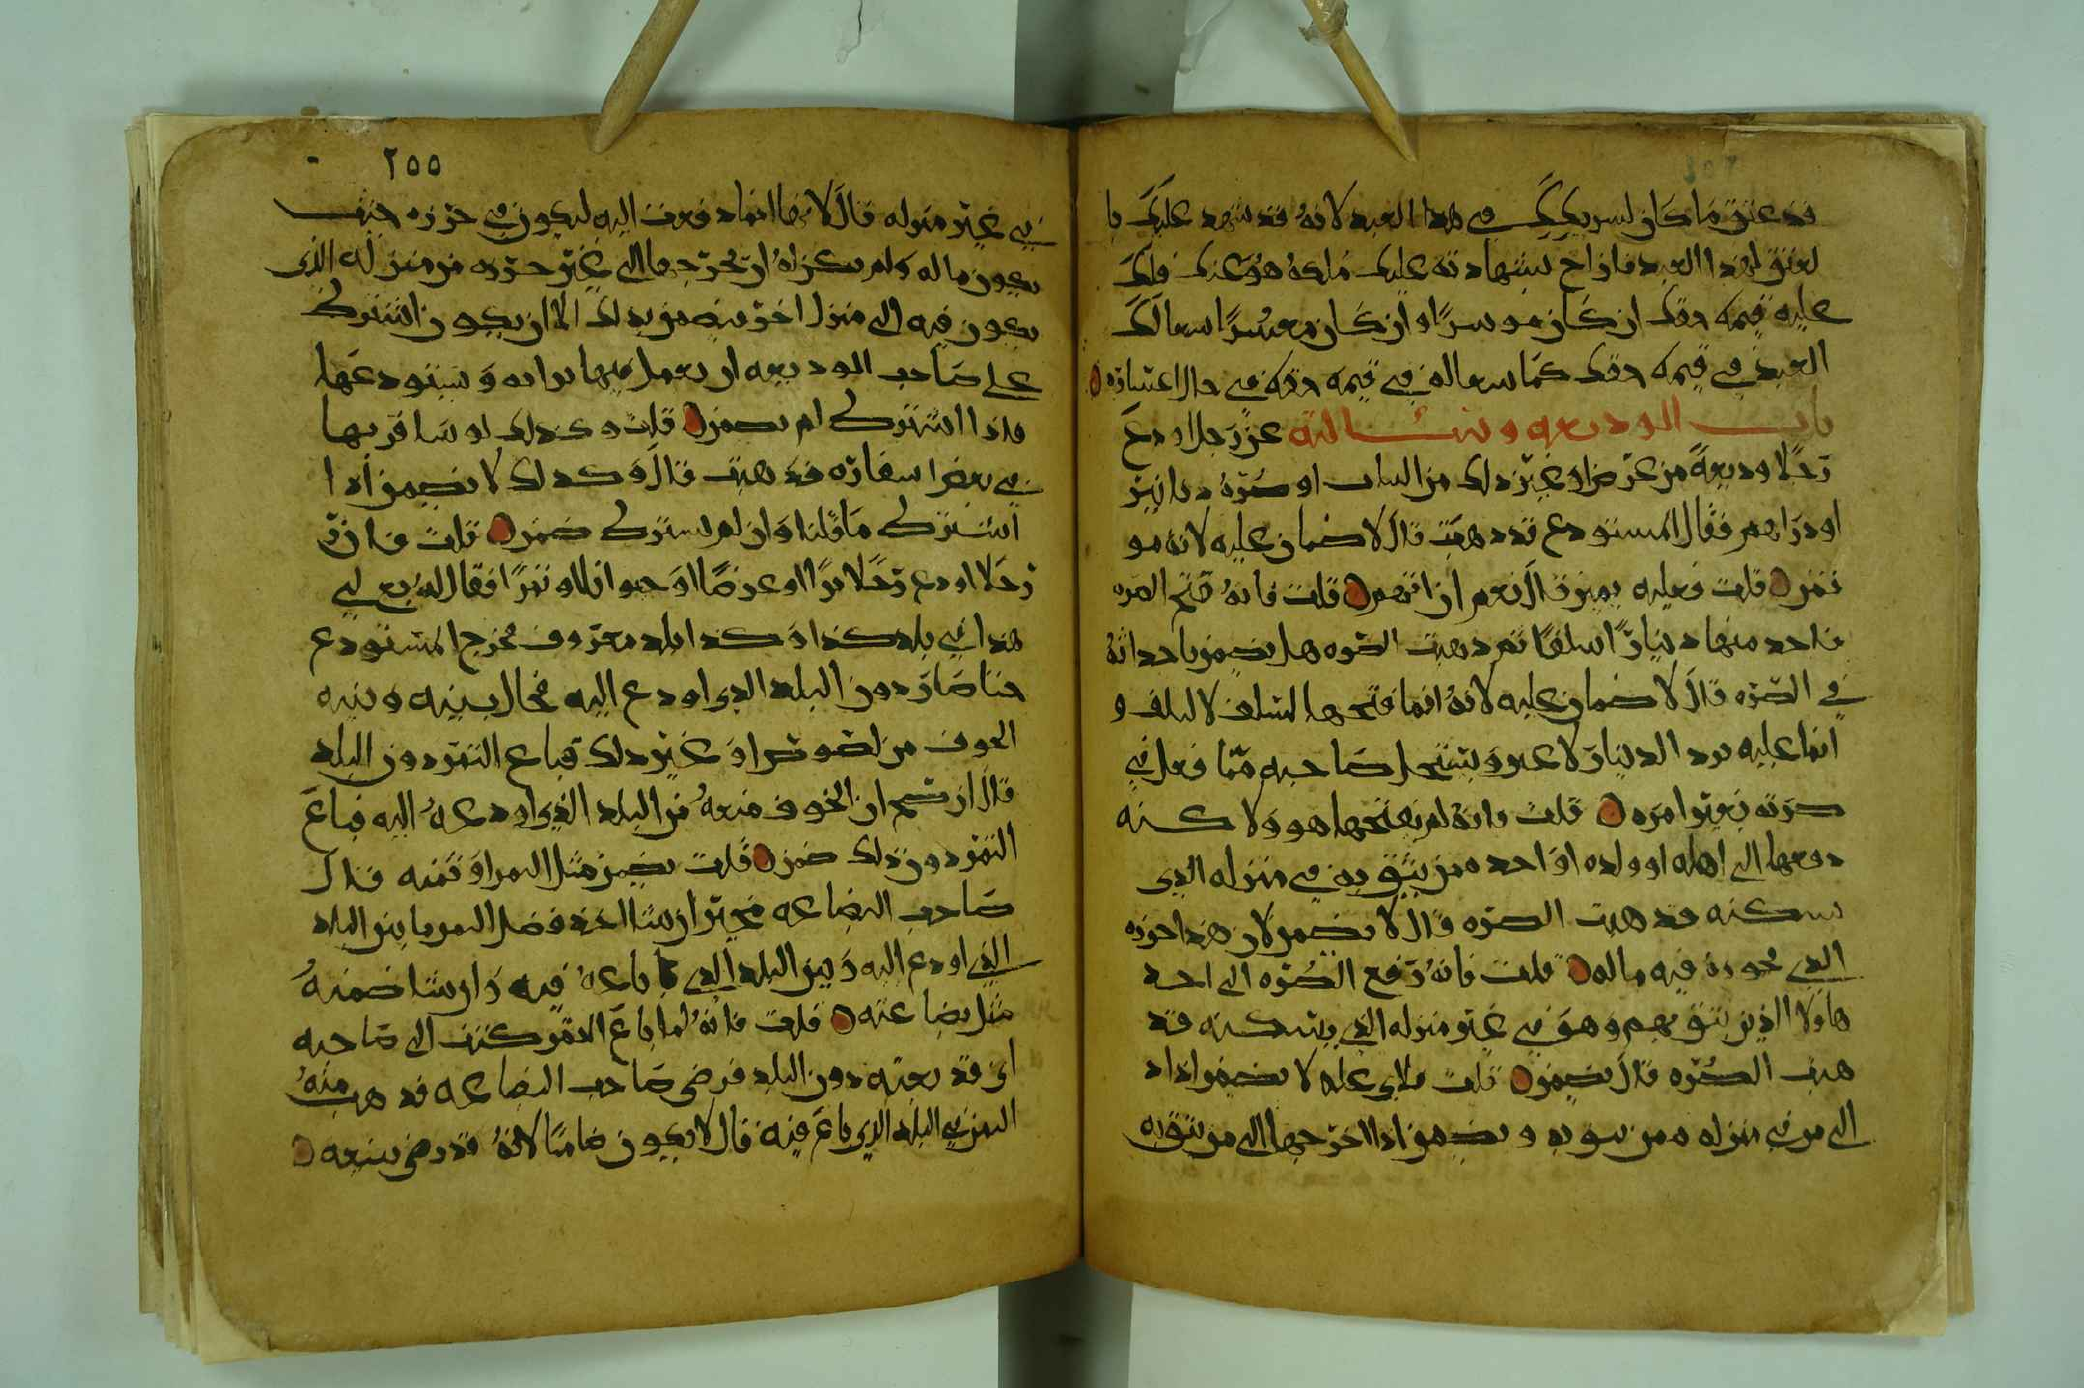 قد عتق ما كان لشريكك في هذا العبد لانه قد شهد عليك با
لعتق لهذا العبد فان اخ بشهادته عليك ملكه هو عنك فلك
عليه قيمه حقك ان كان موسرًا وان كان معسرًا سعا لك
العبد في قيمه حقك كما سعا له في قيمه حقه في حال اعساره
باب الوديعه وتسالته عن رجل اودع
رجلا وديعةً من عرض او غير ذلك من الثياب او صره دنانير
او دراهم فقال المستودع قد ذهبت قال لا ضمان عليه لانه مو
تمن قلت فعليه يمين قال نعم ان اتهم قلت فانه فتح الصره
فاخذ منها دينارًا سلفًا ثم ذهبت الصره هل يضمن باحداثه
في الصره قال لا ضمان عليه لانه انما فتحها لسلف لا لتلف و
انما عليه يرد الدينار لا غير ويستحل صاحبه مما فعل في
صرته بغير امره قلت فانه لم يفتحها هو ولاكنه
دفعها الى اهله او ولده او احد ممن يثق به في منزله الذي
يسكنه فذهبت الصره قال لا يضمن لان هذا حرزه
الذي يحرز فيه ماله قلت فانه دفع الصره الى احد
هاولا الذين يثق بهم وهو في غير منزله الذي يسكنه فذ
هبت الصره قال يضمن قلت فلاي عله لا يضمن اذا د
الى من في منزله ممن يثق به ويضمن اذا اخرجها الى من يثق به
٢٥٥
في غير منزله قال لانها انما دفعت اليه ليكون في حرزه حيث
يكون ماله ولم يكن له ان يخرجها الى غير حرزه من منزله الذي
يكون فيه الى منزل اخر بغيه من يدلك الا ان يكون اشترط
على صاحب الوديعه ان يعمل فيها برايه ويستودعها
فاذا اشترط لم يضمن قلت وكذلك لو سافر بها
في بعض اسفاره فذهبت قال وكذلك لا يضمن اذا
اشترط ما قلنا وان لم يشترط ضمن قلت فان
رجلا اودع رجلا برًا او عرضًا او حيوانًا او تمرًا فقال له بع لي
هذا في بلد كذا وكذا بلد معروف فخرج المستودع
حتا صار دون البلد الذي اودع اليه فحال بينه وبينه
الخوف من لصوص او غير ذلك فباع التمر دون البلد
قال ان صح ان الخوف منعه من البلد الذي اودعه اليه فباع
التمر دون ذلك ضمن قلت يضمن مثل التمر او ثمنه قال
صاحب البضاعه مخير ان شا اخذ فضل التمر ما بين البلد
الذي اودع اليه وبين البلد الذي باعه فيه وان شا ضمنه
مثل بضاعته قلت فانه لما باع التمر كتب الى صاحبه
اني قد بعته دون البلد فرضي صاحب البضاعه فذهب منه
الثمن في البلد الذي باع فيه قال لا يكون ضامنًا لانه قد رضي ببيعه